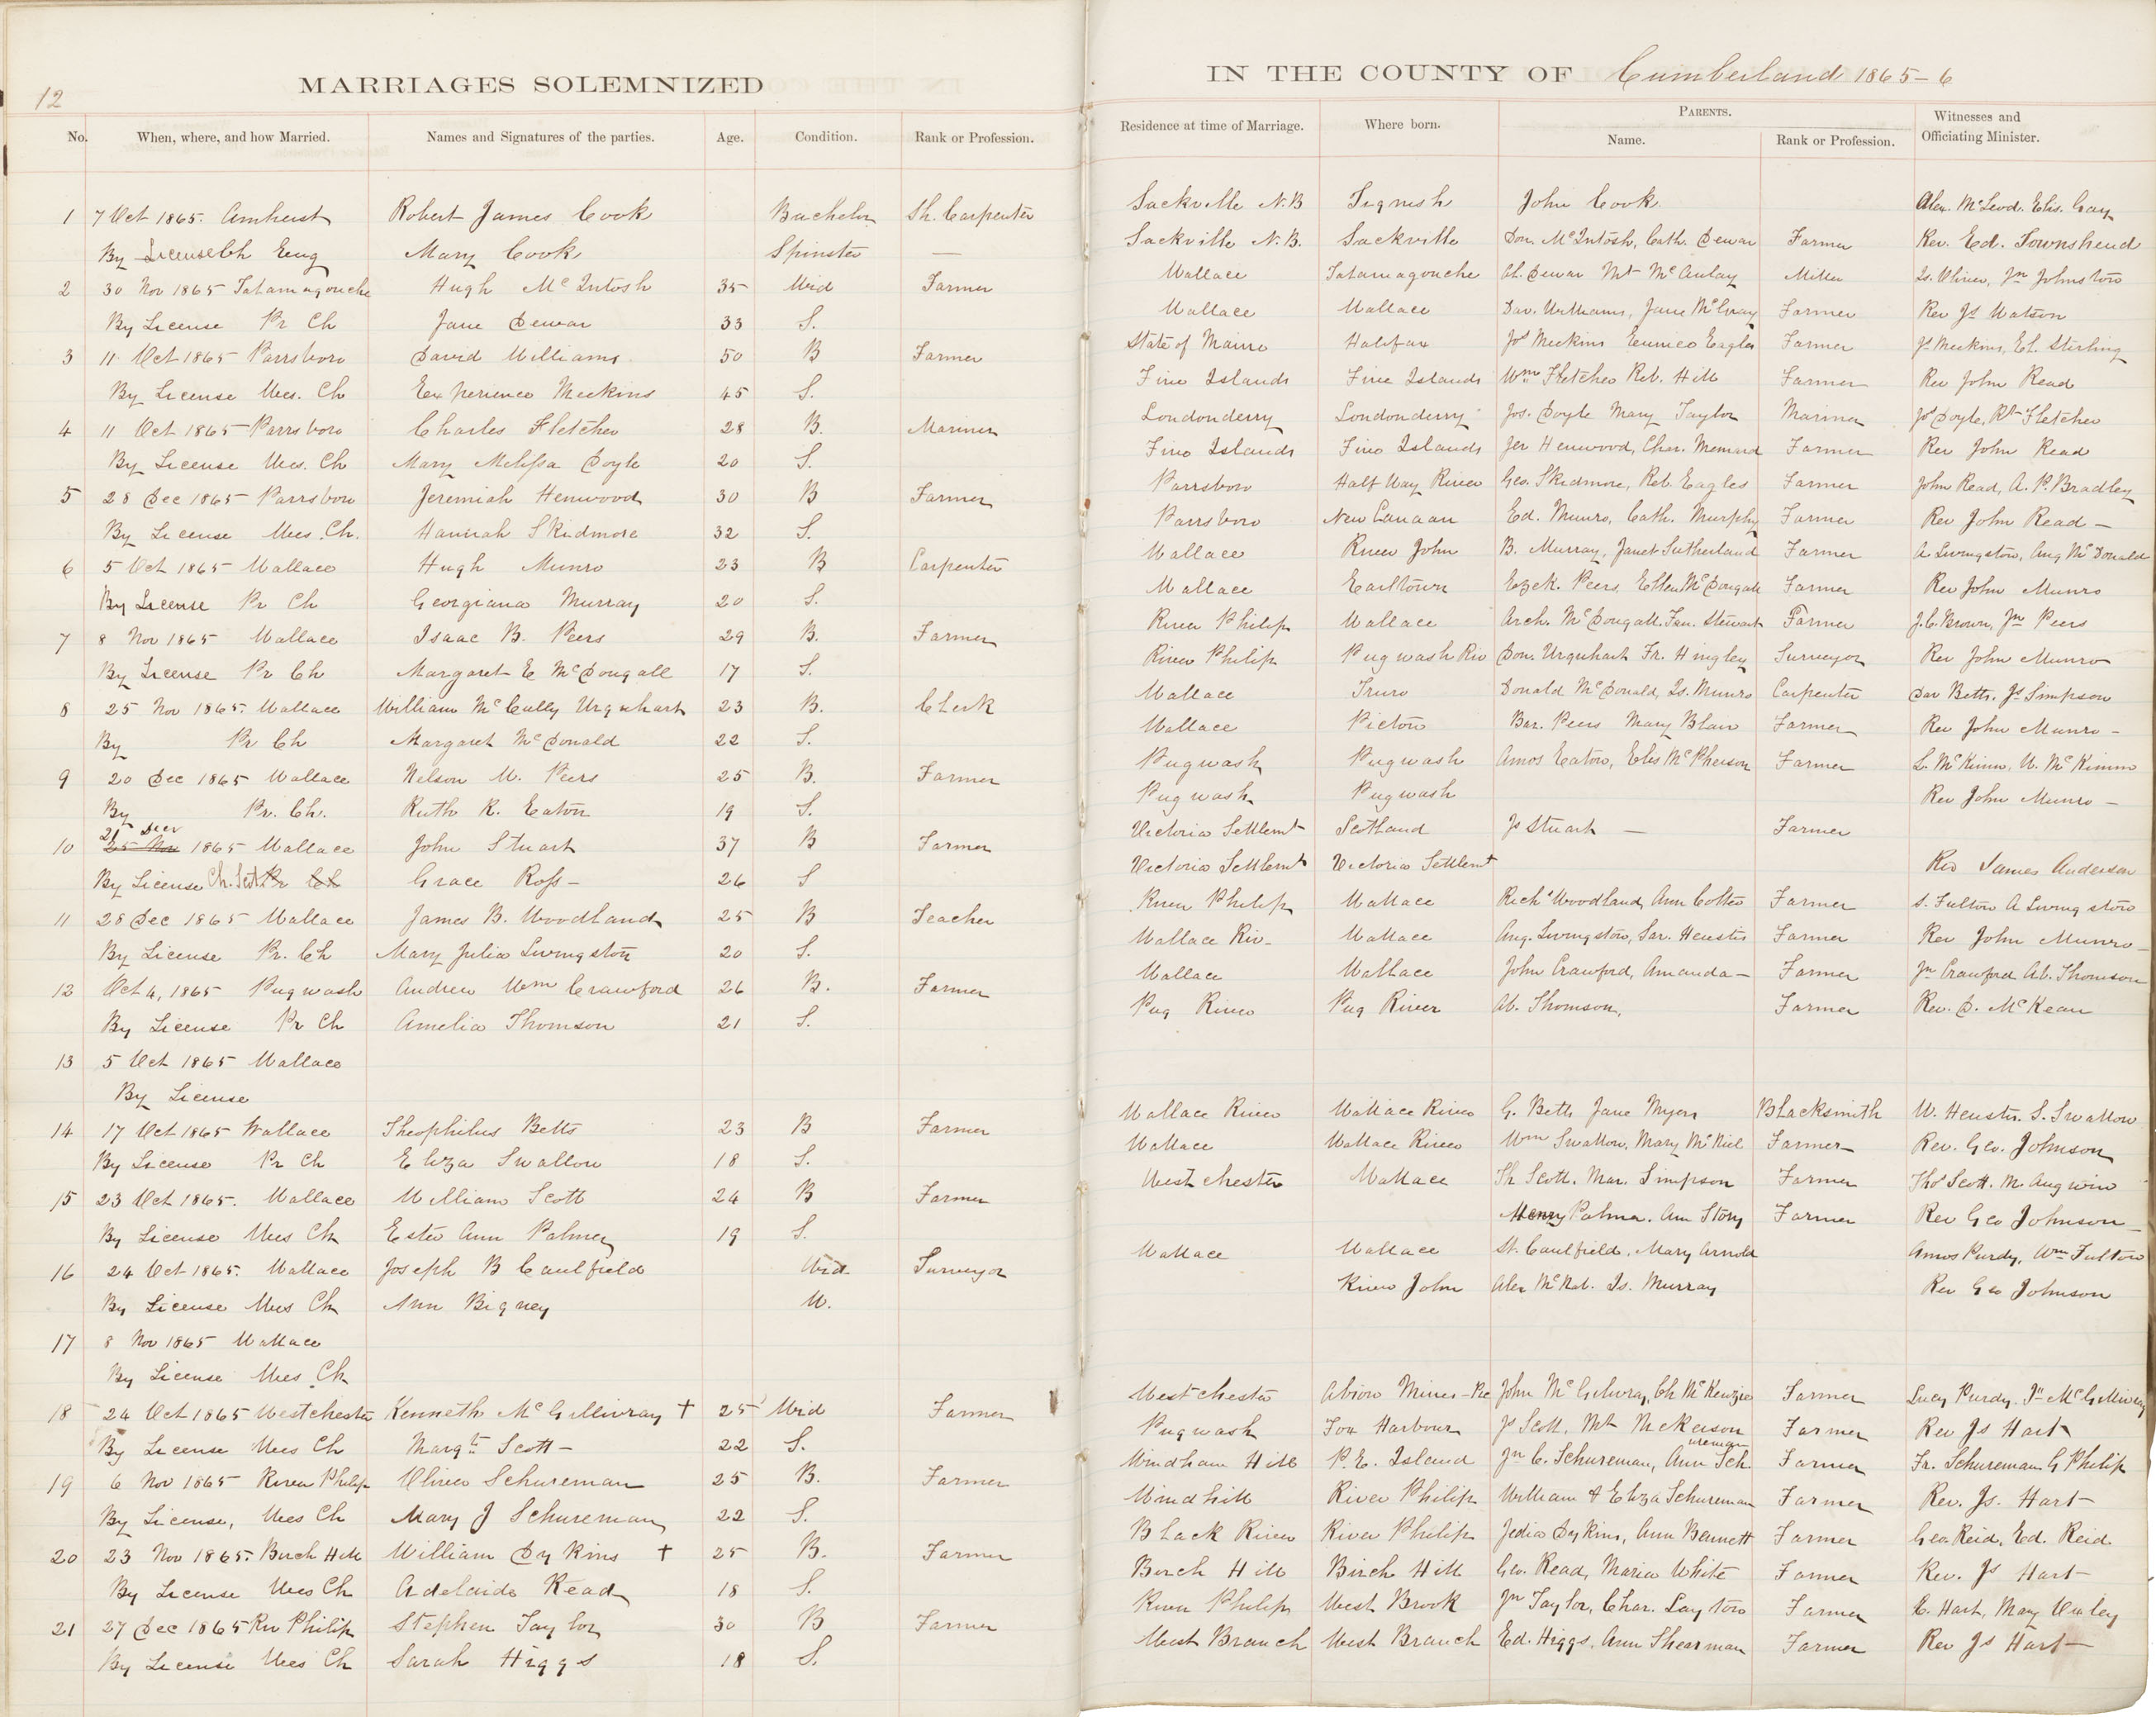 12
MARRIAGES SOLEMNIZED
IN THE COUNTY OF Cumberland 1865-6
No. When, where, and how Married. Names and Signatures of the parties. Age. Condition. Rank or Profession. Residence at time of Marriage. Where born. PARENTS. Name. Rank or Profession. Witnesses and Officiating Minister.
1 7 Oct 1865. Amherst Robert James Cook Bachelor Sh. Carpenter Sackville N.B Tignish John Cook Alex. McLeod. Elis. Gay
By License Ch Eng Mary Cook Spinster — Sackville N.B. Sackville Don. McIntosh, Cath. Dewar Farmer Rev. Ed. Townshend
2 30 Nov 1865 Tatamagouche Hugh McIntosh 35 Wid Farmer Wallace Tatamagouche Al. Dewar Mt McAulay Miller Is. Oliver, Jn Johnston
By License Pr Ch Jane Dewar 33 S. Wallace Wallace Dav. Williams, Jane McGray Farmer Rev Js Watson
3 11 Oct 1865 Parrsboro David Williams 50 B Farmer State of Maine Halifax Jos Meekins Eunice Eagles Farmer Js Meekins, El. Stirling
By License Wes. Ch Experience Meekins 45 S. Five Islands Five Islands Wm Fletcher Reb. Hill Farmer Rev John Read
4 11 Oct 1865 Parrsboro Charles Fletcher 28 B. Mariner Londonderry Londonderry Jos. Doyle Mary Taylor Mariner Js Doyle, Rt Fletcher
By License Wes. Ch Mary Melissa Doyle 20 S. Five Islands Five Islands Jer Henwood, Char. Farmer Rev John Read
5 28 Dec 1865 Parrsboro Jeremiah Henwood 30 B Farmer Parrsboro Half Way River Geo. Skidmore, Reb. Eagles Farmer John Read, A. P. Bradley
By License Wes. Ch. Hannah Skidmore 32 S. Parrsboro New Canaan Ed. Munro, Cath. Murphy Farmer Rev John Read —
6 5 Oct 1865 Wallace Hugh Munro 23 B Carpenter Wallace River John B. Murray, Janet Sutherland Farmer A Livingston, Ang McDonald
By License Pr Ch Georgiana Murray 20 S. Wallace Earltown Ezek. Peers, Ellen McDougall Farmer Rev John Munro
7 8 Nov 1865 Wallace Isaac B. Peers 29 B. Farmer River Philip Wallace Arch. McDougall. Jan. Stewart Farmer J. C. Brown, Jn Peers
By License Pr Ch Margaret E McDougall 17 S. River Philip Pugwash Riv Don. Urquhart Fr. Hingley Surveyor Rev John Munro
8 25 Nov 1865. Wallace William McCully Urquhart 23 B. Clerk Wallace Truro Donald McDonald, Is. Munro Carpenter Dav Betts, Js Simpson
By Pr Ch Margaret McDonald 22 S. Wallace Pictou Bar. Peers Mary Blair Farmer Rev John Munro —
9 20 Dec 1865 Wallace Nelson W. Peers 25 B. Farmer Pugwash Pugwash Amos Eaton, Elis McPherson Farmer L. McKimm, W. McKimm
By Pr. Ch. Ruth R. Eaton 19 S. Pugwash Pugwash Rev John Munro —
21 Decr
10 25 Nov 1865 Wallace John Stuart 37 B Farmer Victoria Settlemt Scotland Js Stuart — Farmer
By License Ch. Scot. Pr Ch Grace Ross — 26 S Victoria Settlemt Victoria Settlemt Rev James Anderson
11 28 Dec 1865 Wallace James B. Woodland 25 B Teacher River Philip Wallace Richd Woodland, Ann Colter Farmer S. Fulton A Livingston
By License Pr. Ch Mary Julia Livingston 20 S. Wallace Riv. Wallace Ang. Livingston, Sar. Heustis Farmer Rev John Munro —
12 Oct 4, 1865 Pugwash Andrew Wm Crawford 26 B. Farmer Wallace Wallace John Crawford, Amanda — Farmer Jn Crawford Ab. Thomson
By License Pr Ch Amelia Thomson 21 S. Pug River Pug River Ab. Thomson, Farmer Rev. D. McKean
13 5 Oct 1865 Wallace
By License
14 17 Oct 1865 Wallace Theophilus Betts 23 B Farmer Wallace River Wallace River G. Betts Jane Myers Blacksmith W. Heustis. S. Swallow
By License Pr Ch Eliza Swallow 18 S. Wallace Wallace River Wm Swallow, Mary McNiel Farmer Rev. Geo. Johnson
15 23 Oct 1865. Wallace William Scott 24 B Farmer Westchester Wallace Th Scott. Mar. Simpson Farmer Thos Scott. M. Angwin
By License Wes Ch Ester Ann Palmer 19 S. Henry Palmer. Ann Story Farmer Rev Geo Johnson —
16 24 Oct 1865. Wallace Joseph B Caulfield Wid Surveyor Wallace Wallace St. Caulfield. Mary Arnold Amos Purdy, Wm Fulton
By License Wes Ch Ann Bigney W. River John Alex McNab. Is. Murray Rev Geo Johnson
17 8 Nov 1865 Wallace
By License Wes Ch
18 24 Oct 1865 Westchester Kenneth McGillivray † 25 Wid Farmer Westchester Albion Mines John McGilvray, Ch McKenzie Farmer Lucy Purdy. Jn McGillivray
By License Wes Ch Margtt Scott — 22 S. Pugwash Fox Harbour Js Scott. Mt McKerson Farmer Rev Js Hart
19 6 Nov 1865 River Philip Oliver Schureman 25 B. Farmer Windham Hill P. E. Island Jn C. Schureman, Ann Schureman Farmer Fr. Schureman G Philip
By License, Wes Ch Mary J Schureman 22 S. Windhill River Philip William & Eliza Schureman Farmer Rev. Js. Hart —
20 23 Nov 1865. Birch Hill William Dykins † 25 B. Farmer Black River River Philip Jedia Dykins, Ann Barnett Farmer Geo Reid, Ed. Reid
By License Wes Ch Adelaide Read 18 S. Birch Hill Birch Hill Geo. Read, Maria White Farmer Rev. Js Hart —
21 27 Dec 1865 Riv Philip Stephen Taylor 30 B Farmer River Philip West Brook Jn Taylor, Char. Layton Farmer C. Hart, May Oxley
By License Wes Ch Sarah Higgs 18 S. West Branch West Branch Ed. Higgs, Ann Shearman Farmer Rev Js Hart —